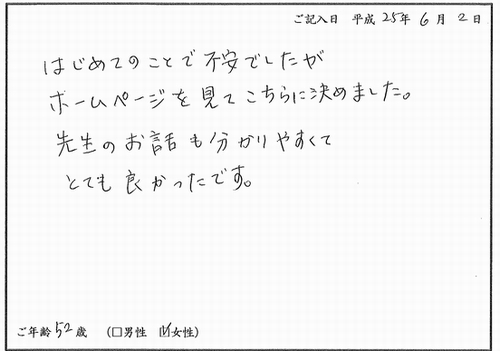 ご記入日 平成25年6月2日
はじめてのことで不安でしたが
ホームページを見てこちらに決めました。
先生のお話も分かりやすくて
とても良かったです。
ご年齢52歳 (□男性 ☑女性)